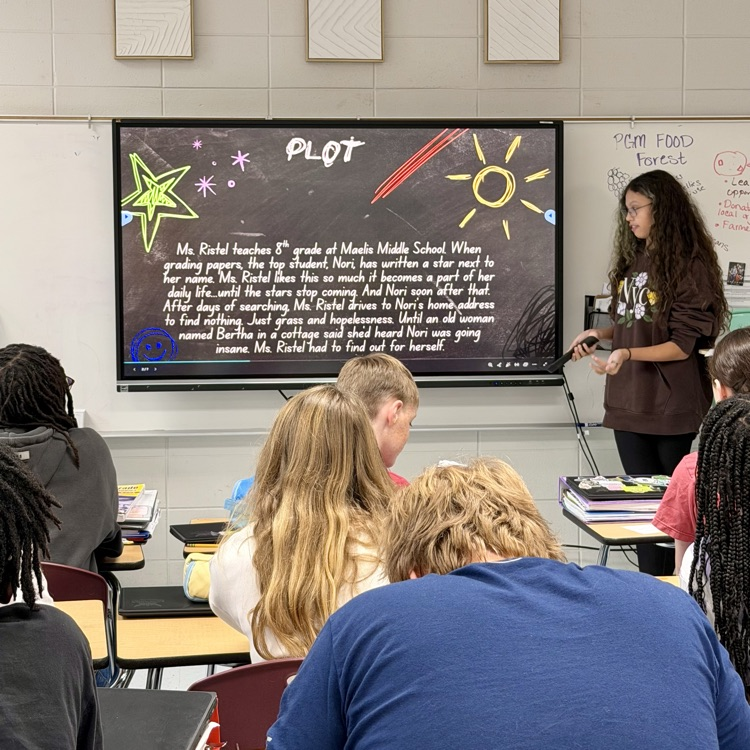 PLOT
Ms. Ristel teaches 8th grade at Maelis Middle School. When
grading papers, the top student, Nori, has written a star next to
her name. Ms. Ristel likes this so much it becomes a part of her
daily life...until the stars stop coming. And Nori soon after that.
After days of searching, Ms. Ristel drives to Nori's home address
to find nothing. Just grass and hopelessness. Until an old woman
named Bertha in a cottage said she'd heard Nori was going
insane. Ms. Ristel had to find out for herself.
PGM FOOD
Forest
• Dona
local
• Farme